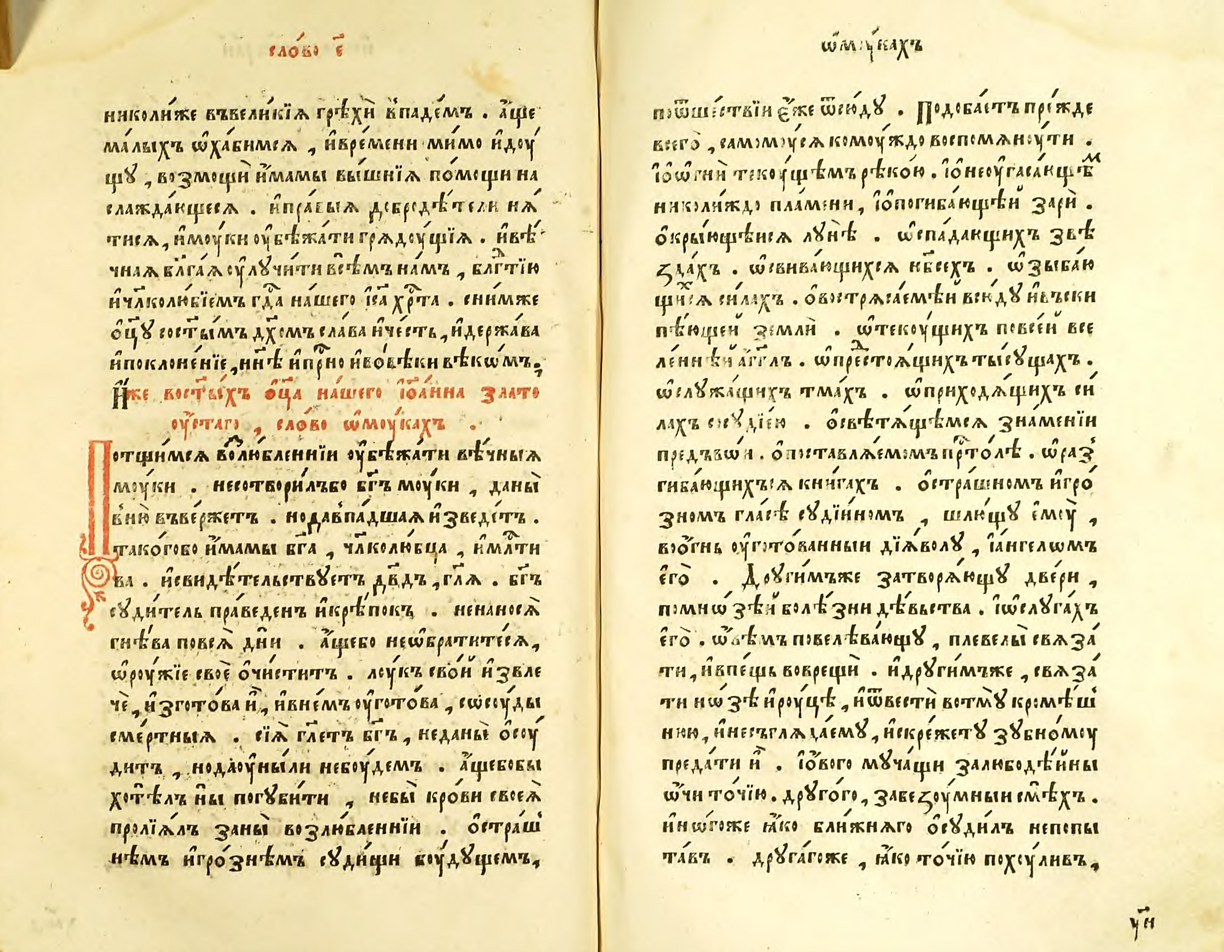 сло́во є҃
николи́же въвели́кїѧ грѣхѝ впаде́мъ . а́ще
ма́лыхъ ѡ҆ха́бимсѧ , и҆вре́мени ми́мо и҆дꙋ́
щꙋ , возмо́щи и҆́мамы вы́шнїѧ по́мощи на
слажда́ющесѧ . и҆пра́выѧ добродѣ́тели ꙗ҆́
тисѧ , и҆моуки оу҆бѣжа́ти грѧдоу́щїѧ . и҆вѣ́
чнаѧ бл҃га́ѧ оу҆лучи́ти всѣ́мъ на́мъ , блгⷣтїю
и҆чл҃колю́бїемъ гдⷭ҇а на́шего і҆с҃а хрⷭ҇та̀ . сни́мже
ѻ҆ц҃ꙋ состы́мъ дх҃омъ сла́ва и҆че́сть , и҆держа́ва
и҆поклоне́нїе , нн҃ѣ и҆при́сно и҆вовѣ́ки вѣкѡ́мъ .
И҆́же восты́хъ ѻ҆ц҃а на́шего і҆ѡа́нна злато
оу́стаго , сло́во ѡ҆моу́кахъ .
Потщи́мсѧ возлю́бленнїи оу҆бѣжа́ти вѣ́чныѧ
моу́ки . несотвори́лъбо бг҃ъ моу́ки , даны̀
вню̀ въве́ржетъ . нода́впа́дшаѧ и҆зведе́тъ .
тако́гобо и҆́мамы бг҃а , чл҃колю́бца , и҆млⷭ҇ти
ва . и҆свидѣ́тельствꙋетъ дв҃дъ , гл҃ѧ . бг҃ъ
сꙋди́тель пра́веденъ и҆крѣ́покъ . ненаносѧ̀
гнѣ́ва повсѧ̀ дни̑ . а҆́щебо неѡ҆брати́тесѧ ,
ѡ҆роу́жїе своѐ ѡ҆чи́ститъ . лоу́къ сво́й и҆звле
чѐ , и҆згото́ва и҆̀ , и҆вне́мъ оу҆гото́ва , сѡсоу́ды
сме́ртныѧ . сїѧ̑ гл҃етъ бг҃ъ , неданы̀ ѡ҆соу́
дитъ , нода̀оу҆ны́ли небоу́демъ . а҆́щебобы
хотѣ́лъ ны̀ погꙋби́ти , небы̀ кро́ви своеѧ̀
пролїѧ́лъ заны̀ возлю́бленнїи . ѻ҆стра́ш
нѣмъ и҆гро́знѣмъ сꙋди́щи боу́дꙋщемъ ,
ѡ҆моу́кахъ
поѿше́ствїи є҆́же ѿсю́дꙋ . Подоба́етъ пре́жде
всего̀ , самомоу́сѧ комоу́ждо воспомѧноу́ти .
і҆ѻ҆ѻ҆гнѝ текоу́щѣмъ рѣко́ю . і҆ѻ҆неоу҆гаса́ющѣмъ
николи́ждо пла́мени , і҆ѻ҆погиба́ющѣй зарѝ .
ѻ҆кры́ющѣисѧ лꙋнѣ̀ . ѡ҆спа́дающихъ звѣ
ꙁда́хъ . ѡ҆свива́ющихсѧ нб҃сехъ . ѡ҆зы́баю
щихсѧ си́лахъ . ѻ҆вострѧса́емѣй всю́дꙋ и҆въски
пѣ́ющей землѝ . ѡ҆текоу́щихъ повсе́й все
ле́ннѣй а҆́гг҃лъ . ѡ҆престоѧ́щихъ ты́сꙋщахъ .
ѡ҆слꙋжа́щихъ тма́хъ . ѡ҆приходѧ́щихъ си́
лахъ сосꙋдїе́ю . ѻ҆свѣтѧ́щѣмсѧ зна́менїи
предъва́ми . ѻ҆поставлѧ́емомъ прⷭ҇то́лѣ . ѡ҆раз
гиба́ющихсѧ кни́гахъ . ѻ҆стра́шномъ и҆гро́
зномъ гла́сѣ сꙋди́йномъ , шлю́щꙋ є҆моу̀ ,
воо҆́гнь оу҆гото́ванныи дїѧ́волꙋ , і҆а́нгеломъ
є҆го̀ . Дроуги́мъже затворѧ́ющꙋ две́ри ,
помниѡ҆зѣ́й болѣ́зни дѣ́вьства . і҆ѡ҆слꙋга́хъ
є҆го̀ . ѡ҆всѣ́мъ повелѣва́ющꙋ , пле́велы свѧза́
ти , и҆впе́щь воврещѝ . и҆дрꙋги́мъже , свѧза́
ти но́зѣ и҆роу́цѣ , и҆ѿвестѝ вотмꙋ̀ кромѣ́ш
нюю , и҆несъглѧда́емꙋ , и҆скре́жетꙋ зꙋбно́моу
преда́ти и҆̀ . і҆о́вого мꙋ́чащи залюбодѣ́йны
ѡ҆чи то́чїю . дрꙋго́го , забезоу́мныи смѣ́хъ .
и҆но́гоже ꙗ҆́ко бли́жнѧго ѡ҆сꙋди́лъ непопы
та́въ . дрꙋга́гоже , ꙗ҆́ко то́чїю похоули́въ ,
ун҃